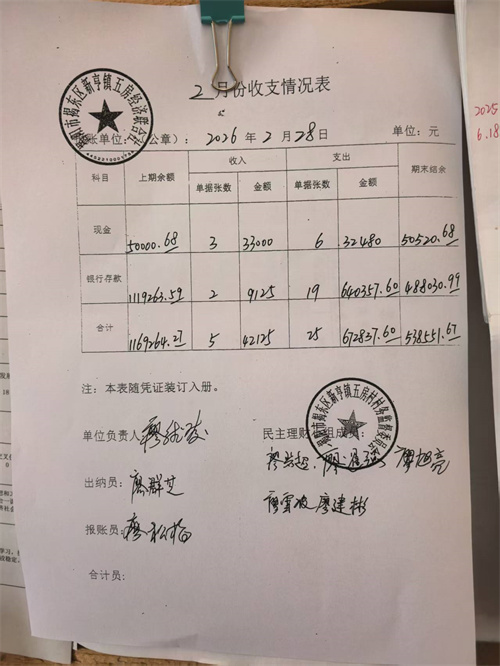 2月份收支情况表
揭阳市揭东区新亨镇五房经济联合社
报账单位:(公章): 2026年2月28日 单位:元
科目 上期余额 收入 支出 期末结余
单据张数 金额 单据张数 金额
现金 50000.68 3 33000 6 32480 50520.68
银行存款 1119263.59 2 9125 19 640357.60 488030.99
合计 1169264.27 5 42125 25 672837.60 538551.67
注:本表随凭证装订入册。
揭阳市揭东区新亨镇五房村村务监督委员会
单位负责人 民主理财小组成员:
出纳员:廖群芝 廖旭亮
报账员:廖 廖建彬
合计员:
2025
6.18